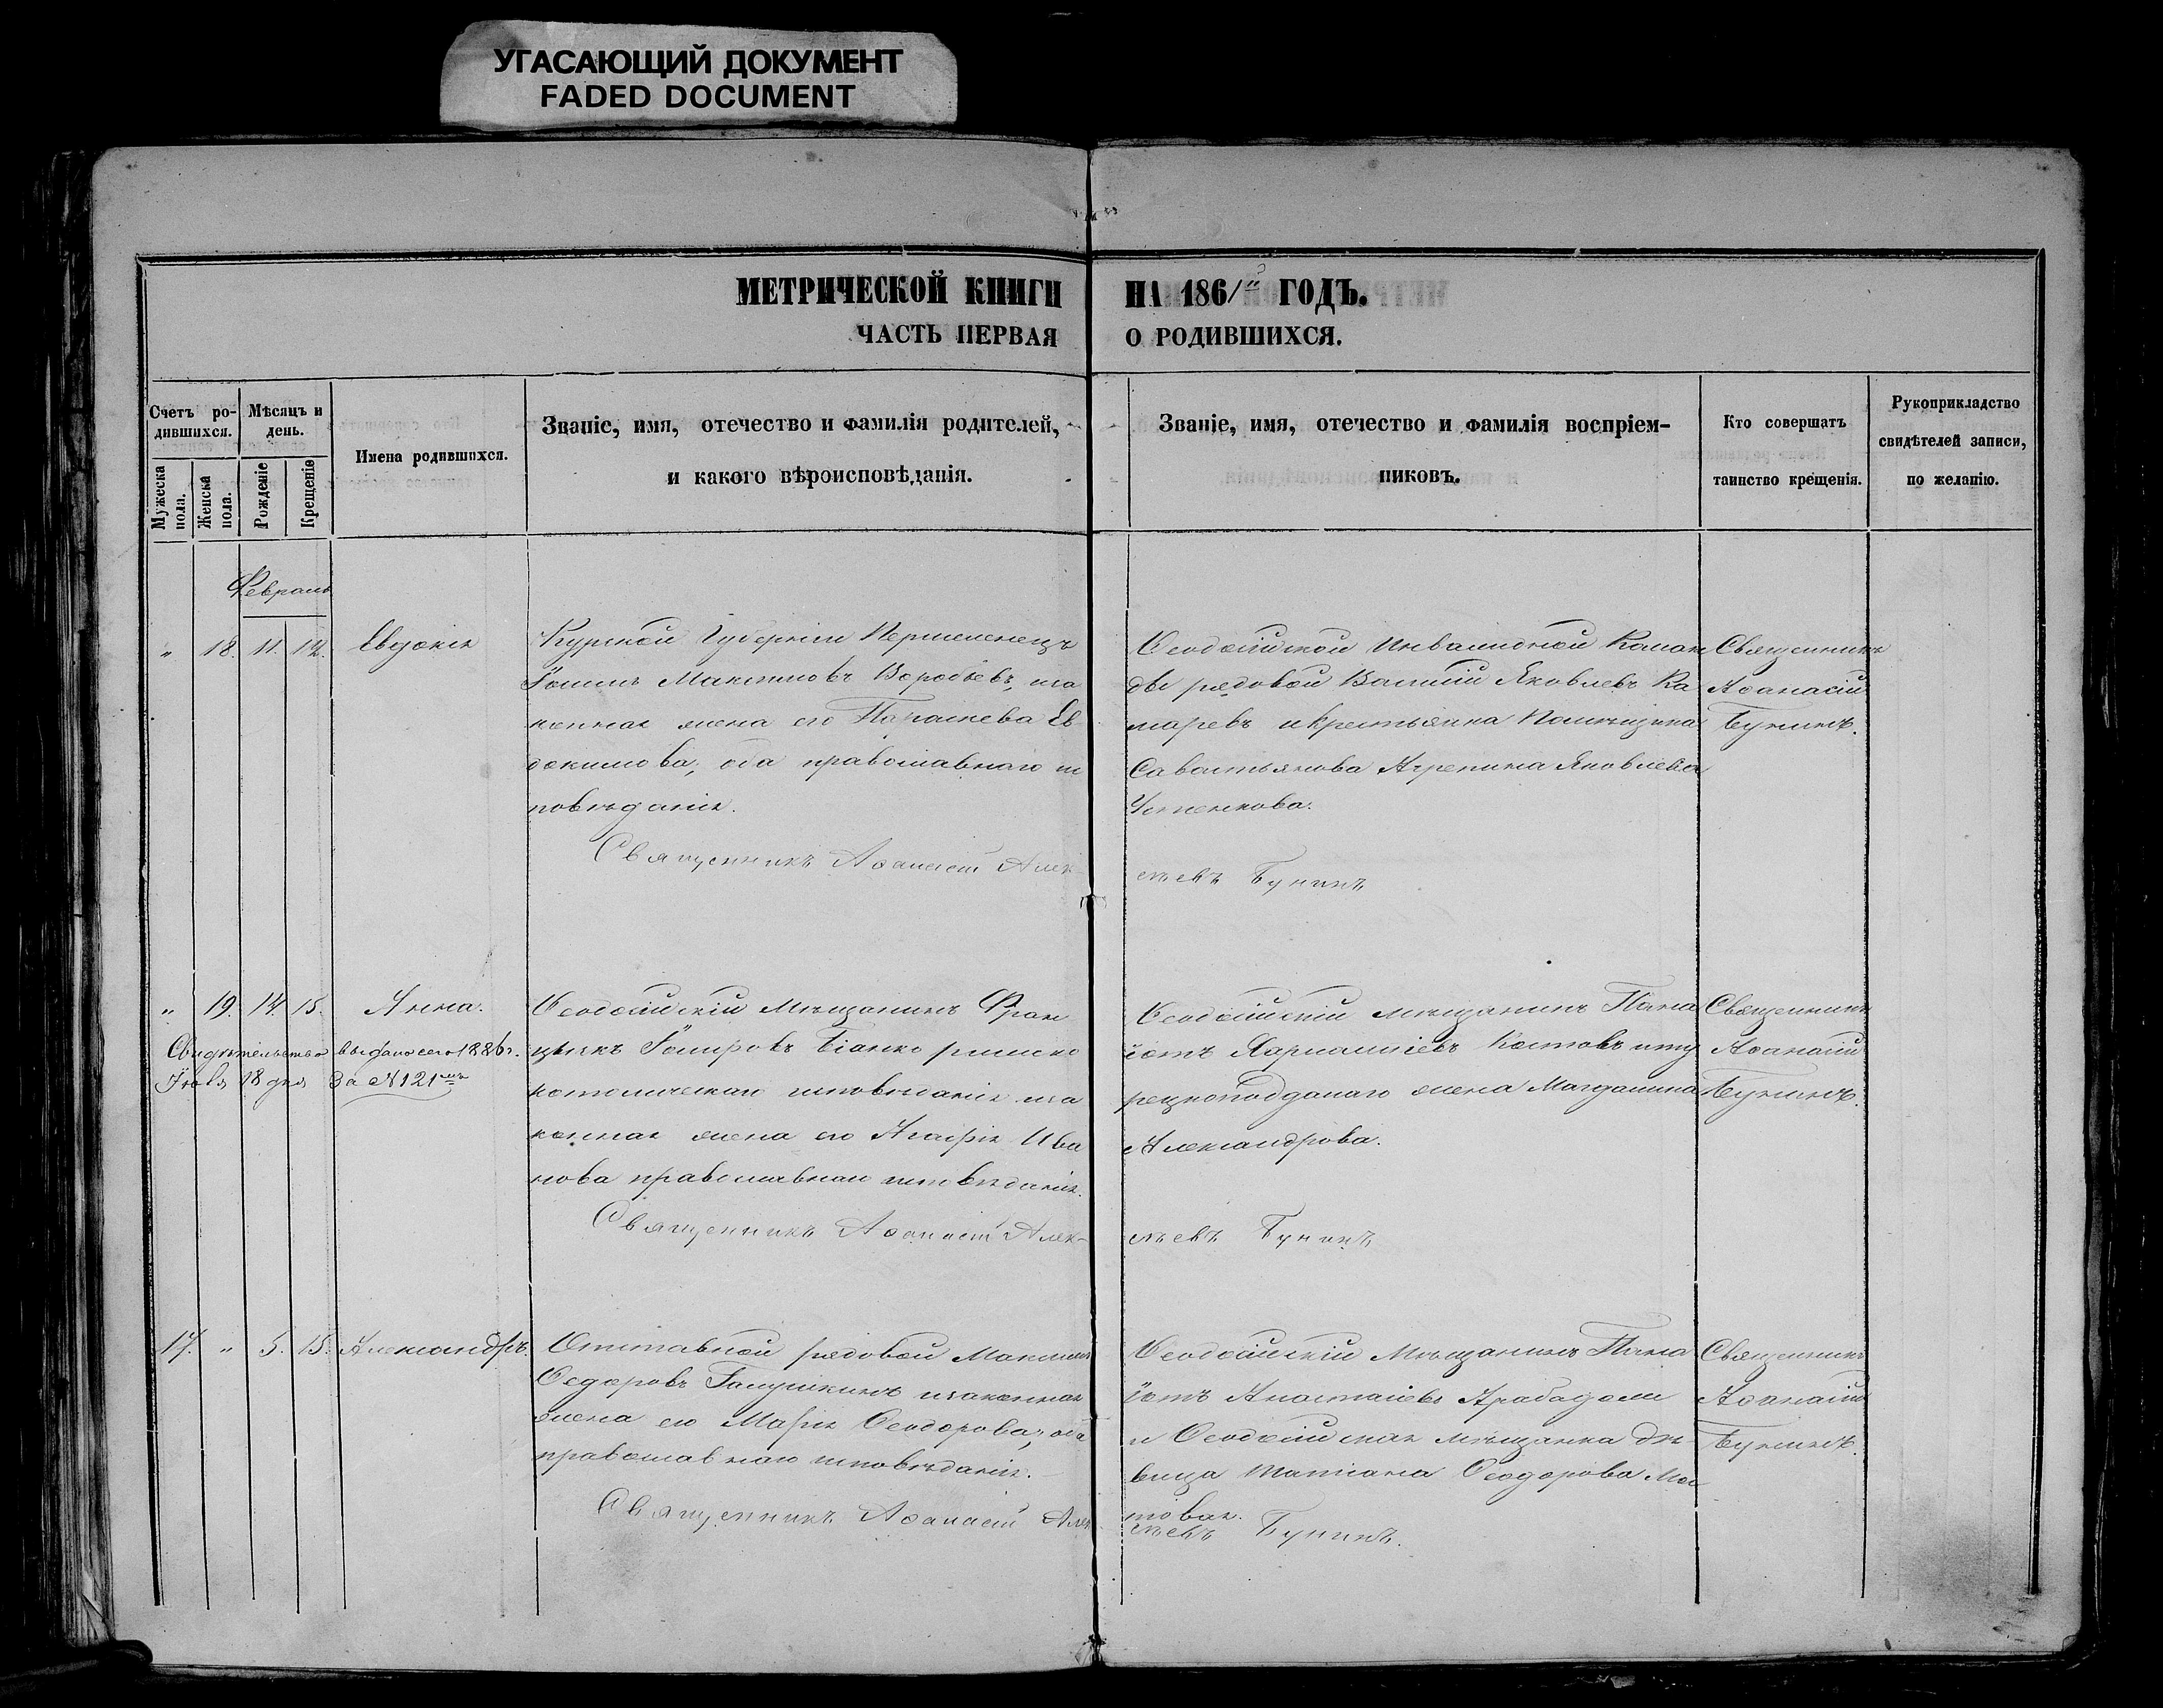 УГАСАЮЩИЙ ДОКУМЕНТ
FADED DOCUMENT
МЕТРИЧЕСКОЙ КНИГИ НА 1861 ГОДЪ.
ЧАСТЬ ПЕРВАЯ О РОДИВШИХСЯ.
Счетъ ро-
дившихся.
Мужеска пола.
Женска пола.
Мѣсяцъ и
день.
Рожденіе
Крещеніе
Имена родившихся.
Званіе, имя, отечество и фамилія родителей,
и какого вѣроисповѣданія.
Званіе, имя, отечество и фамилія воспріем-
никовъ.
Кто совершатъ
таинство крещенія.
Рукоприкладство
свидѣтелей записи,
по желанію.
Февраль
" 18. 11. 12. Евдокія
Курской Губерніи
Максимовъ Воробьевъ, иза
конная жена его Параскева Ев
докимова, оба православнаго ис
повѣданія.
Ѳеодосійской Инвалидной Коман
ды рядовой Василій Яковлевъ Ка
маревъ и крестьянка Помѣщика
Савостьянова Агрепина Яковлева
Священникъ
Аѳанасій
Бунинъ.
Священникъ Аѳанасій Алек-
сѣевъ Бунинъ
" 19. 14. 15. Анна.
Свидѣтельство выдано сего 1886 г.
Іюля 18 дня За №121мъ
Ѳеодосійскій Мѣщанинъ Фран
цискъ Біанко римско
католическаго исповѣданія иза
конная жена его Агафія Ива
нова православнаго исповѣданія.
Ѳеодосійскій мѣщанинъ Пана
іотъ Костовъ и ту
рецкоподданаго жена Магдалина
Александрова.
Священникъ
Аѳанасій
Бунинъ.
Священникъ Аѳанасій Алек-
сѣевъ Бунинъ
17. " 5. 15. Александръ.
Отставной рядовой Максимъ
Ѳедоровъ Галушкинъ и законная
жена его Марія Ѳеодорова, оба
православнаго исповѣданія.
Ѳеодосійскій Мѣщанинъ Пана
іотъ Анастасіевъ
и Ѳеодосійская мѣщанка дѣ-
вица Татіана Ѳеодорова
Священникъ
Аѳанасій
Бунинъ.
Священникъ Аѳанасій Алек
сѣевъ Бунинъ.